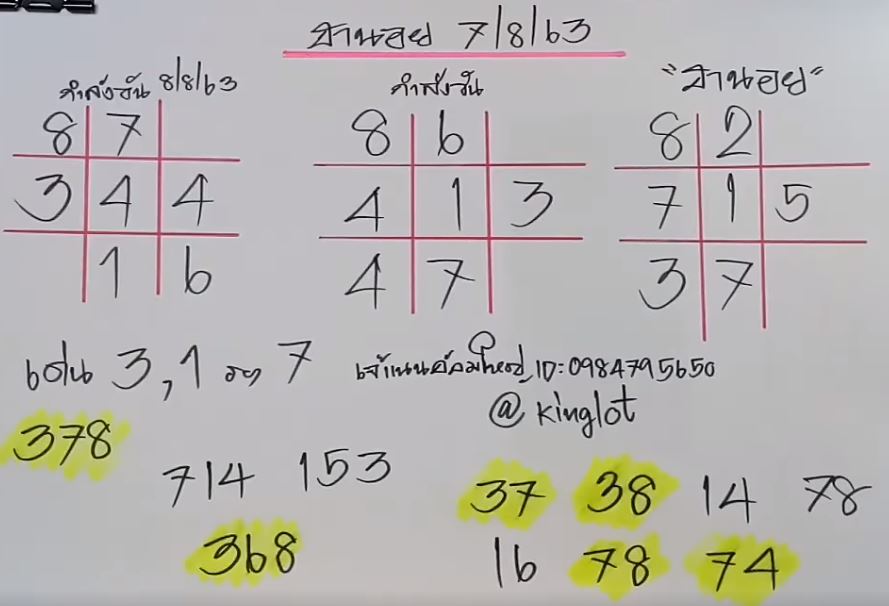 ฮานอย 7/8/63
กำลังวัน 8/8/63
8 7
3 4 4
1 6
กำลังวัน
8 6
4 1 3
4 7
"ฮานอย"
8 2
7 1 5
3 7
เด่น 3,1 รอง 7
378
714 153
368
ID:0984795650
@kinglot
37 38 14 78
16 78 74